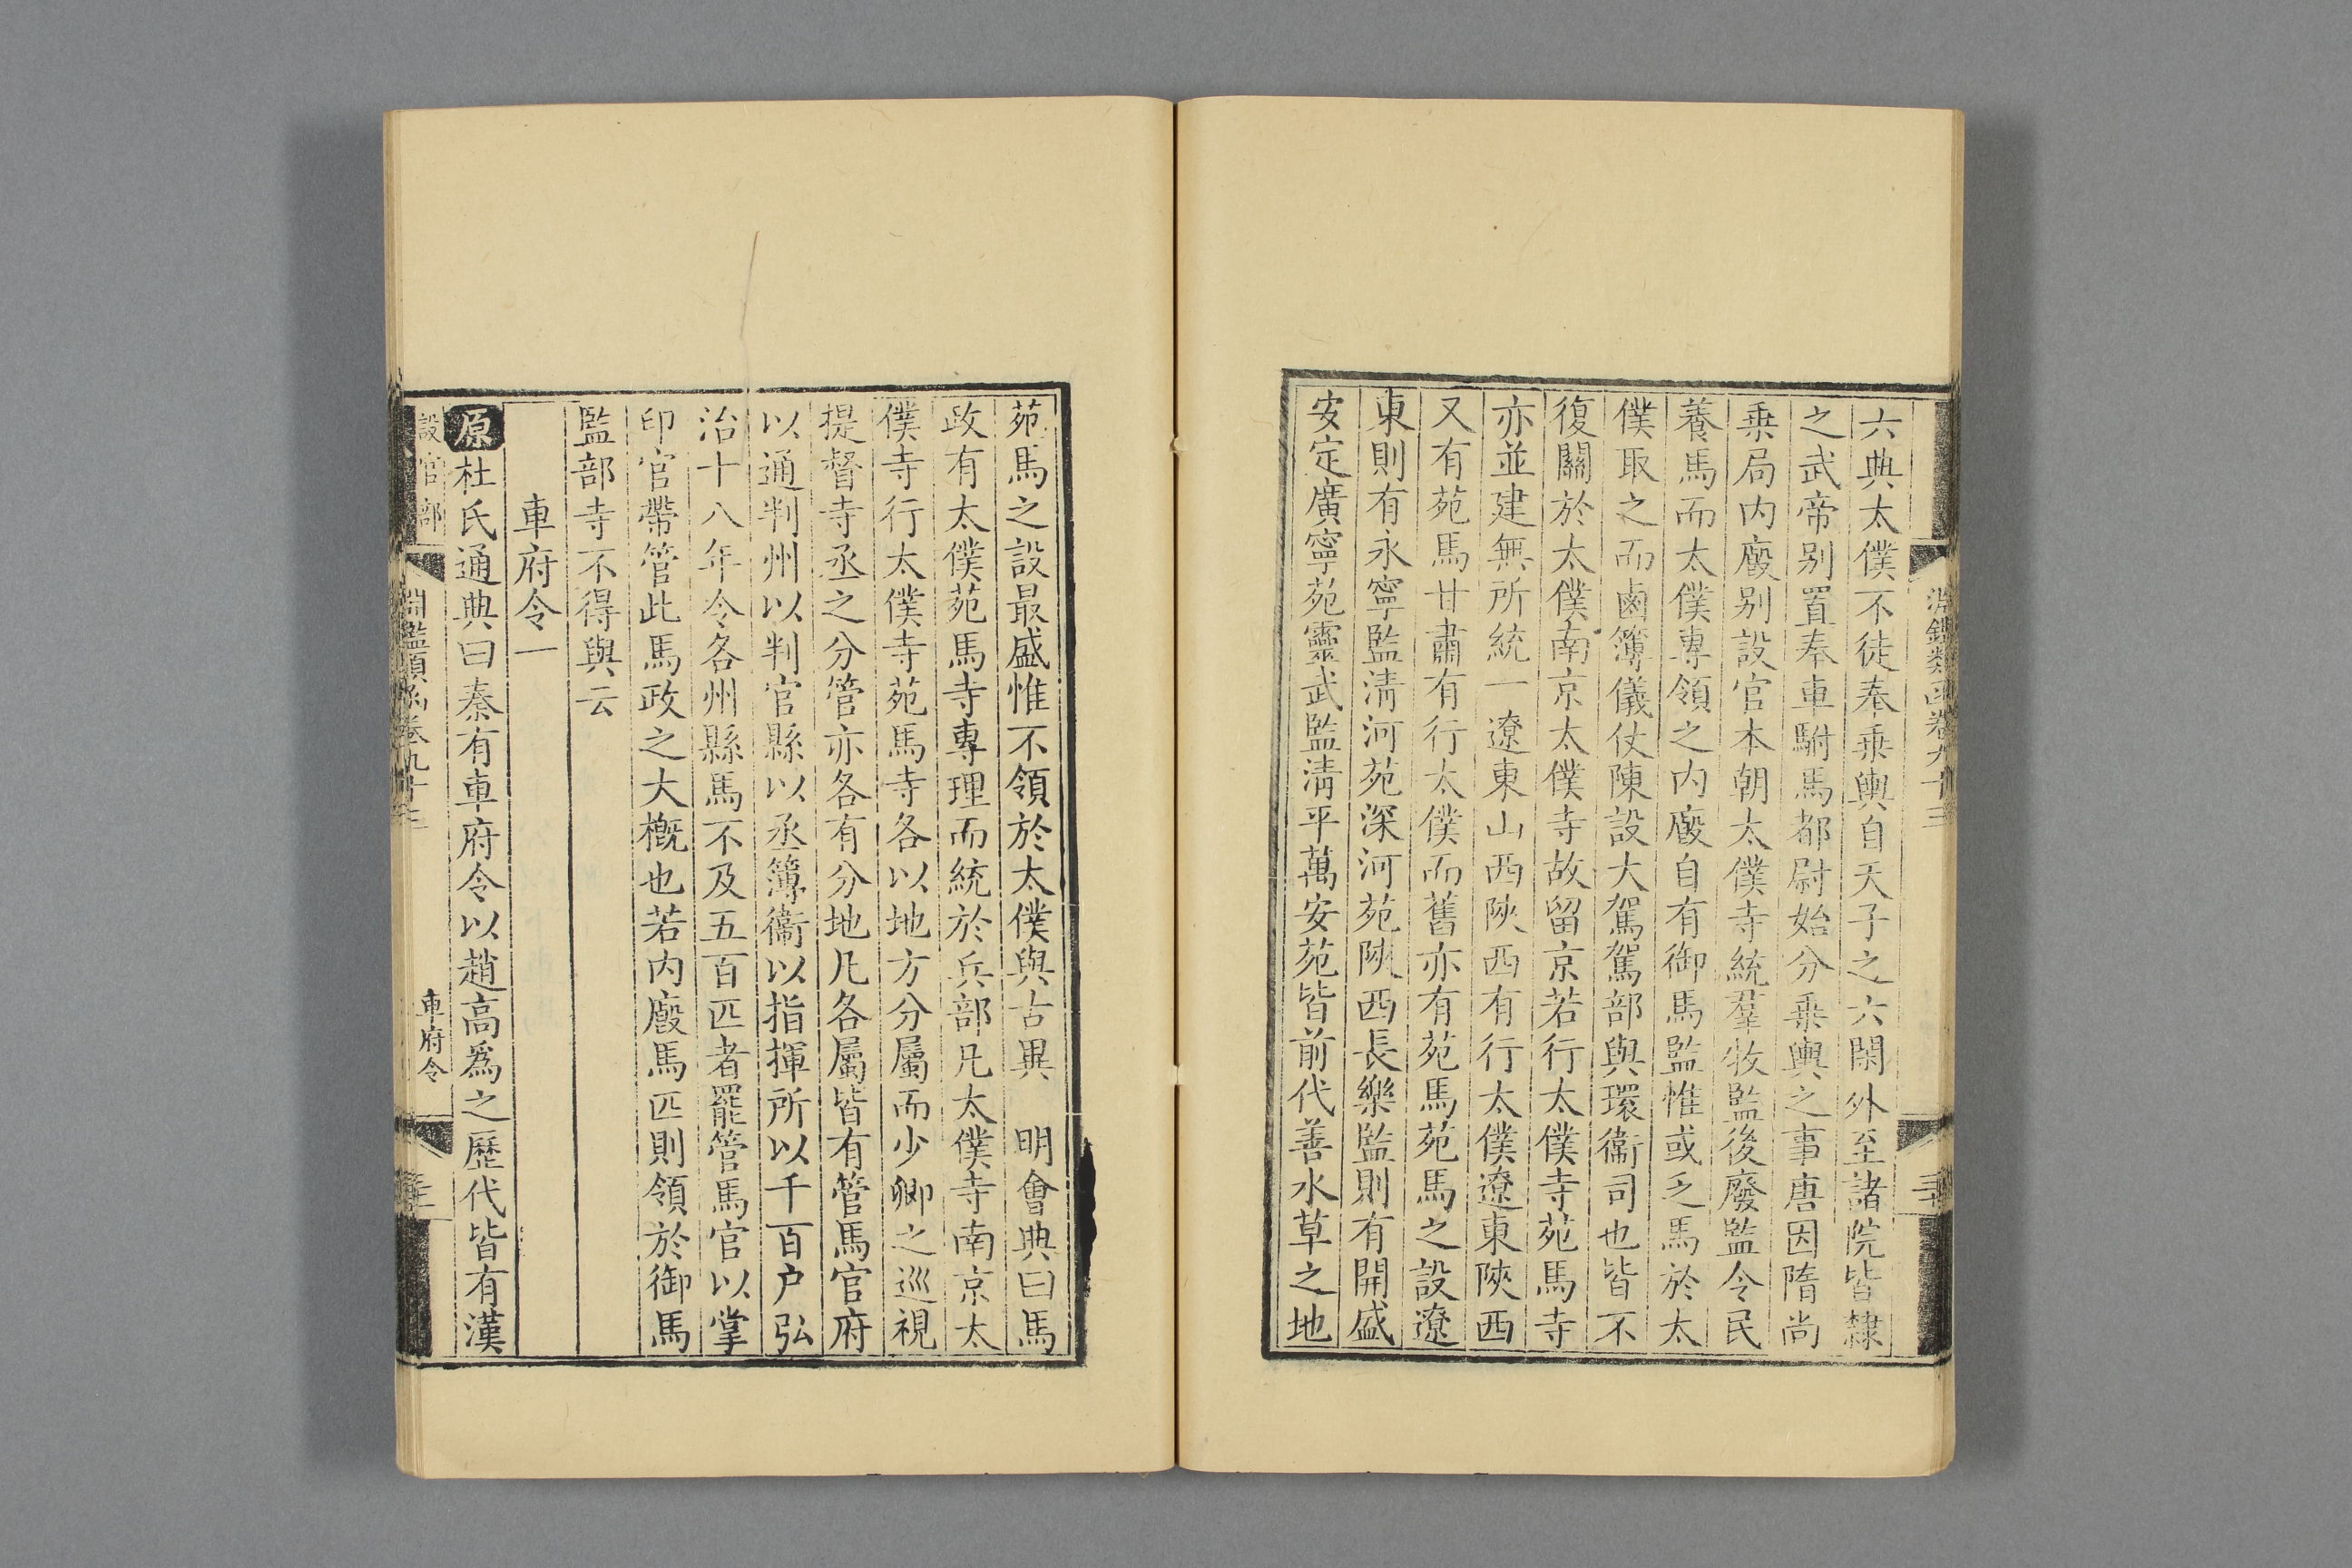 淵鑑類函卷九十三
六典太僕不徒奉乗輿自天子之六閑外至諸院皆隸
之武帝别置奉車駙馬都尉始分乗輿之事唐因隋尚
乗局内廐别設官本朝太僕寺統羣牧監後廢監令民
養馬而太僕專領之内廐自有御馬監惟或乏馬於太
僕取之而鹵簿儀仗陳設大駕駕部與環衞司也皆不
復關於太僕南京太僕寺故留京若行太僕寺苑馬寺
亦並建無所統一遼東山西陜西有行太僕遼東陜西
又有苑馬甘肅有行太僕而舊亦有苑馬苑馬之設遼
東則有永寧監淸河苑深河苑陜西長樂監則有開盛
安定廣寧苑靈武監淸平萬安苑皆前代善水草之地
苑馬之設最盛惟不領於太僕與古異　明會典曰馬
政有太僕苑馬寺專理而統於兵部凡太僕寺南京太
僕寺行太僕寺苑馬寺各以地方分屬而少卿之巡視
提督寺丞之分管亦各有分地凡各屬皆有管馬官府
以通判州以判官縣以丞簿衞以指揮所以千百户弘
治十八年令各州縣馬不及五百匹者罷管馬官以掌
印官帶管此馬政之大槪也若内廐馬匹則領於御馬
監部寺不得與云
車府令一
原杜氏通典曰秦有車府令以趙高爲之歷代皆有漢
設官部
淵鑑類函卷九十三
車府令